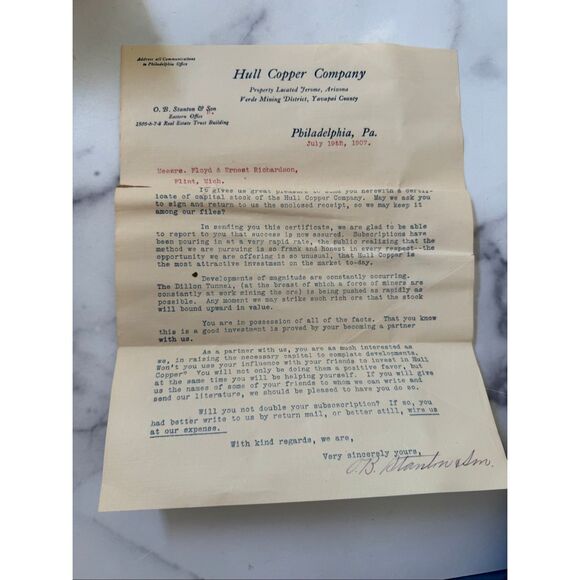 Address all Communications
to Philadelphia Office
Hull Copper Company
Property Located Jerome, Arizona
Verde Mining District, Yavapai County
O. B. Stanton & Son
Eastern Office
Real Estate Trust Building
Philadelphia, Pa.
July 19th, 1907.
Messrs. Floyd & Ernest Richardson,
Flint, Mich.
It gives us great pleasure to send you herewith a certif-
icate of capital stock of the Hull Copper Company. May we ask you
to sign and return to us the enclosed receipt, so we may keep it
among our files?
In sending you this certificate, we are glad to be able
to report to you that success is now assured. Subscriptions have
been pouring in at a very rapid rate, the public realizing that the
method we are pursuing is so frank and honest in every respect--the
opportunity we are offering is so unusual, that Hull Copper is
the most attractive investment on the market to-day.
Developments of magnitude are constantly occurring.
The Dillon Tunnel, (at the breast of which a force of miners are
constantly at work mining the ore) is being pushed as rapidly as
possible. Any moment we may strike such rich ore that the stock
will bound upward in value.
You are in possession of all of the facts. That you know
this is a good investment is proved by your becoming a partner
with us.
As a partner with us, you are as much interested as
we, in raising the necessary capital to complete developments.
Won't you use your influence with your friends to invest in Hull
Copper? You will not only be doing them a positive favor, but
at the same time you will be helping yourself. If you will give
us the names of some of your friends to whom we can write and
send our literature, we should be pleased to have you do so.
Will you not double your subscription? If so, you
had better write to us by return mail, or better still, wire us
at our expense.
With kind regards, we are,
Very sincerely yours,
O. B. Stanton & Son.